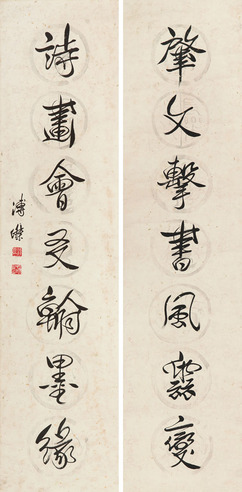 肇文擊書風變
詩畫會友翰墨緣
溥傑